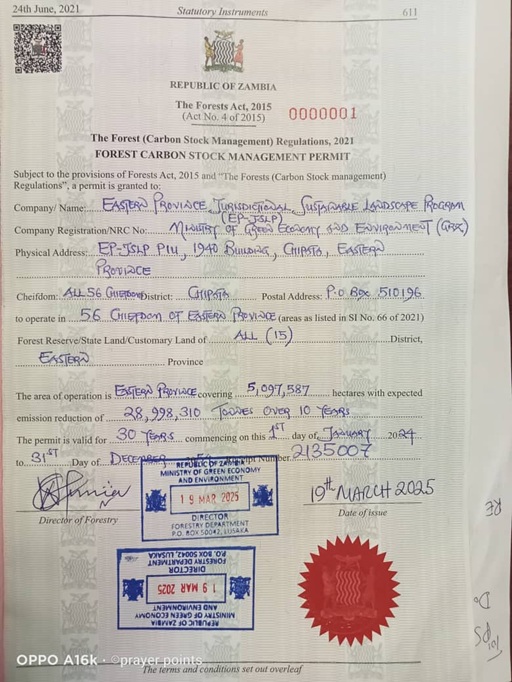 24th June, 2021 Statutory Instruments 611
REPUBLIC OF ZAMBIA
The Forests Act, 2015
(Act No. 4 of 2015) 0000001
The Forest (Carbon Stock Management) Regulations, 2021
FOREST CARBON STOCK MANAGEMENT PERMIT
Subject to the provisions of Forests Act, 2015 and "The Forests (Carbon Stock management)
Regulations", a permit is granted to:
Company/ Name: EASTERN PROVINCE JURISDICTIONAL SUSTAINABLE LANDSCAPE PROGRAM
(EP-JSLP)
Company Registration/NRC No: MINISTRY OF GREEN ECONOMY AND ENVIRONMENT
Physical Address: EP-JSLP PIU, 1940 BUILDING, CHIPATA, EASTERN
PROVINCE
Cheifdom: ALL 56 District: CHIPATA Postal Address: P.O BOX 510196
to operate in 56 CHIEFDOM OF EASTERN PROVINCE (areas as listed in SI No. 66 of 2021)
Forest Reserve/State Land/Customary Land of ALL (15) District,
EASTERN Province
The area of operation is EASTERN PROVINCE covering 5,097,587 hectares with expected
emission reduction of 28,998,310 TONNES OVER 10 YEARS
The permit is valid for 30 YEARS commencing on this 1ST day of JANUARY 2024
to 31ST Day of DECEMBER Number 2135007
REPUBLIC OF ZAMBIA
MINISTRY OF GREEN ECONOMY
AND ENVIRONMENT
19 MAR 2025
DIRECTOR
FORESTRY DEPARTMENT
P.O. BOX 50042, LUSAKA
Director of Forestry
19th MARCH 2025
Date of issue
REPUBLIC OF ZAMBIA
MINISTRY OF GREEN ECONOMY
AND ENVIRONMENT
19 MAR 2025
DIRECTOR
FORESTRY DEPARTMENT
P.O. BOX 50042, LUSAKA
OPPO A16k · ©prayer points
The terms and conditions set out overleaf